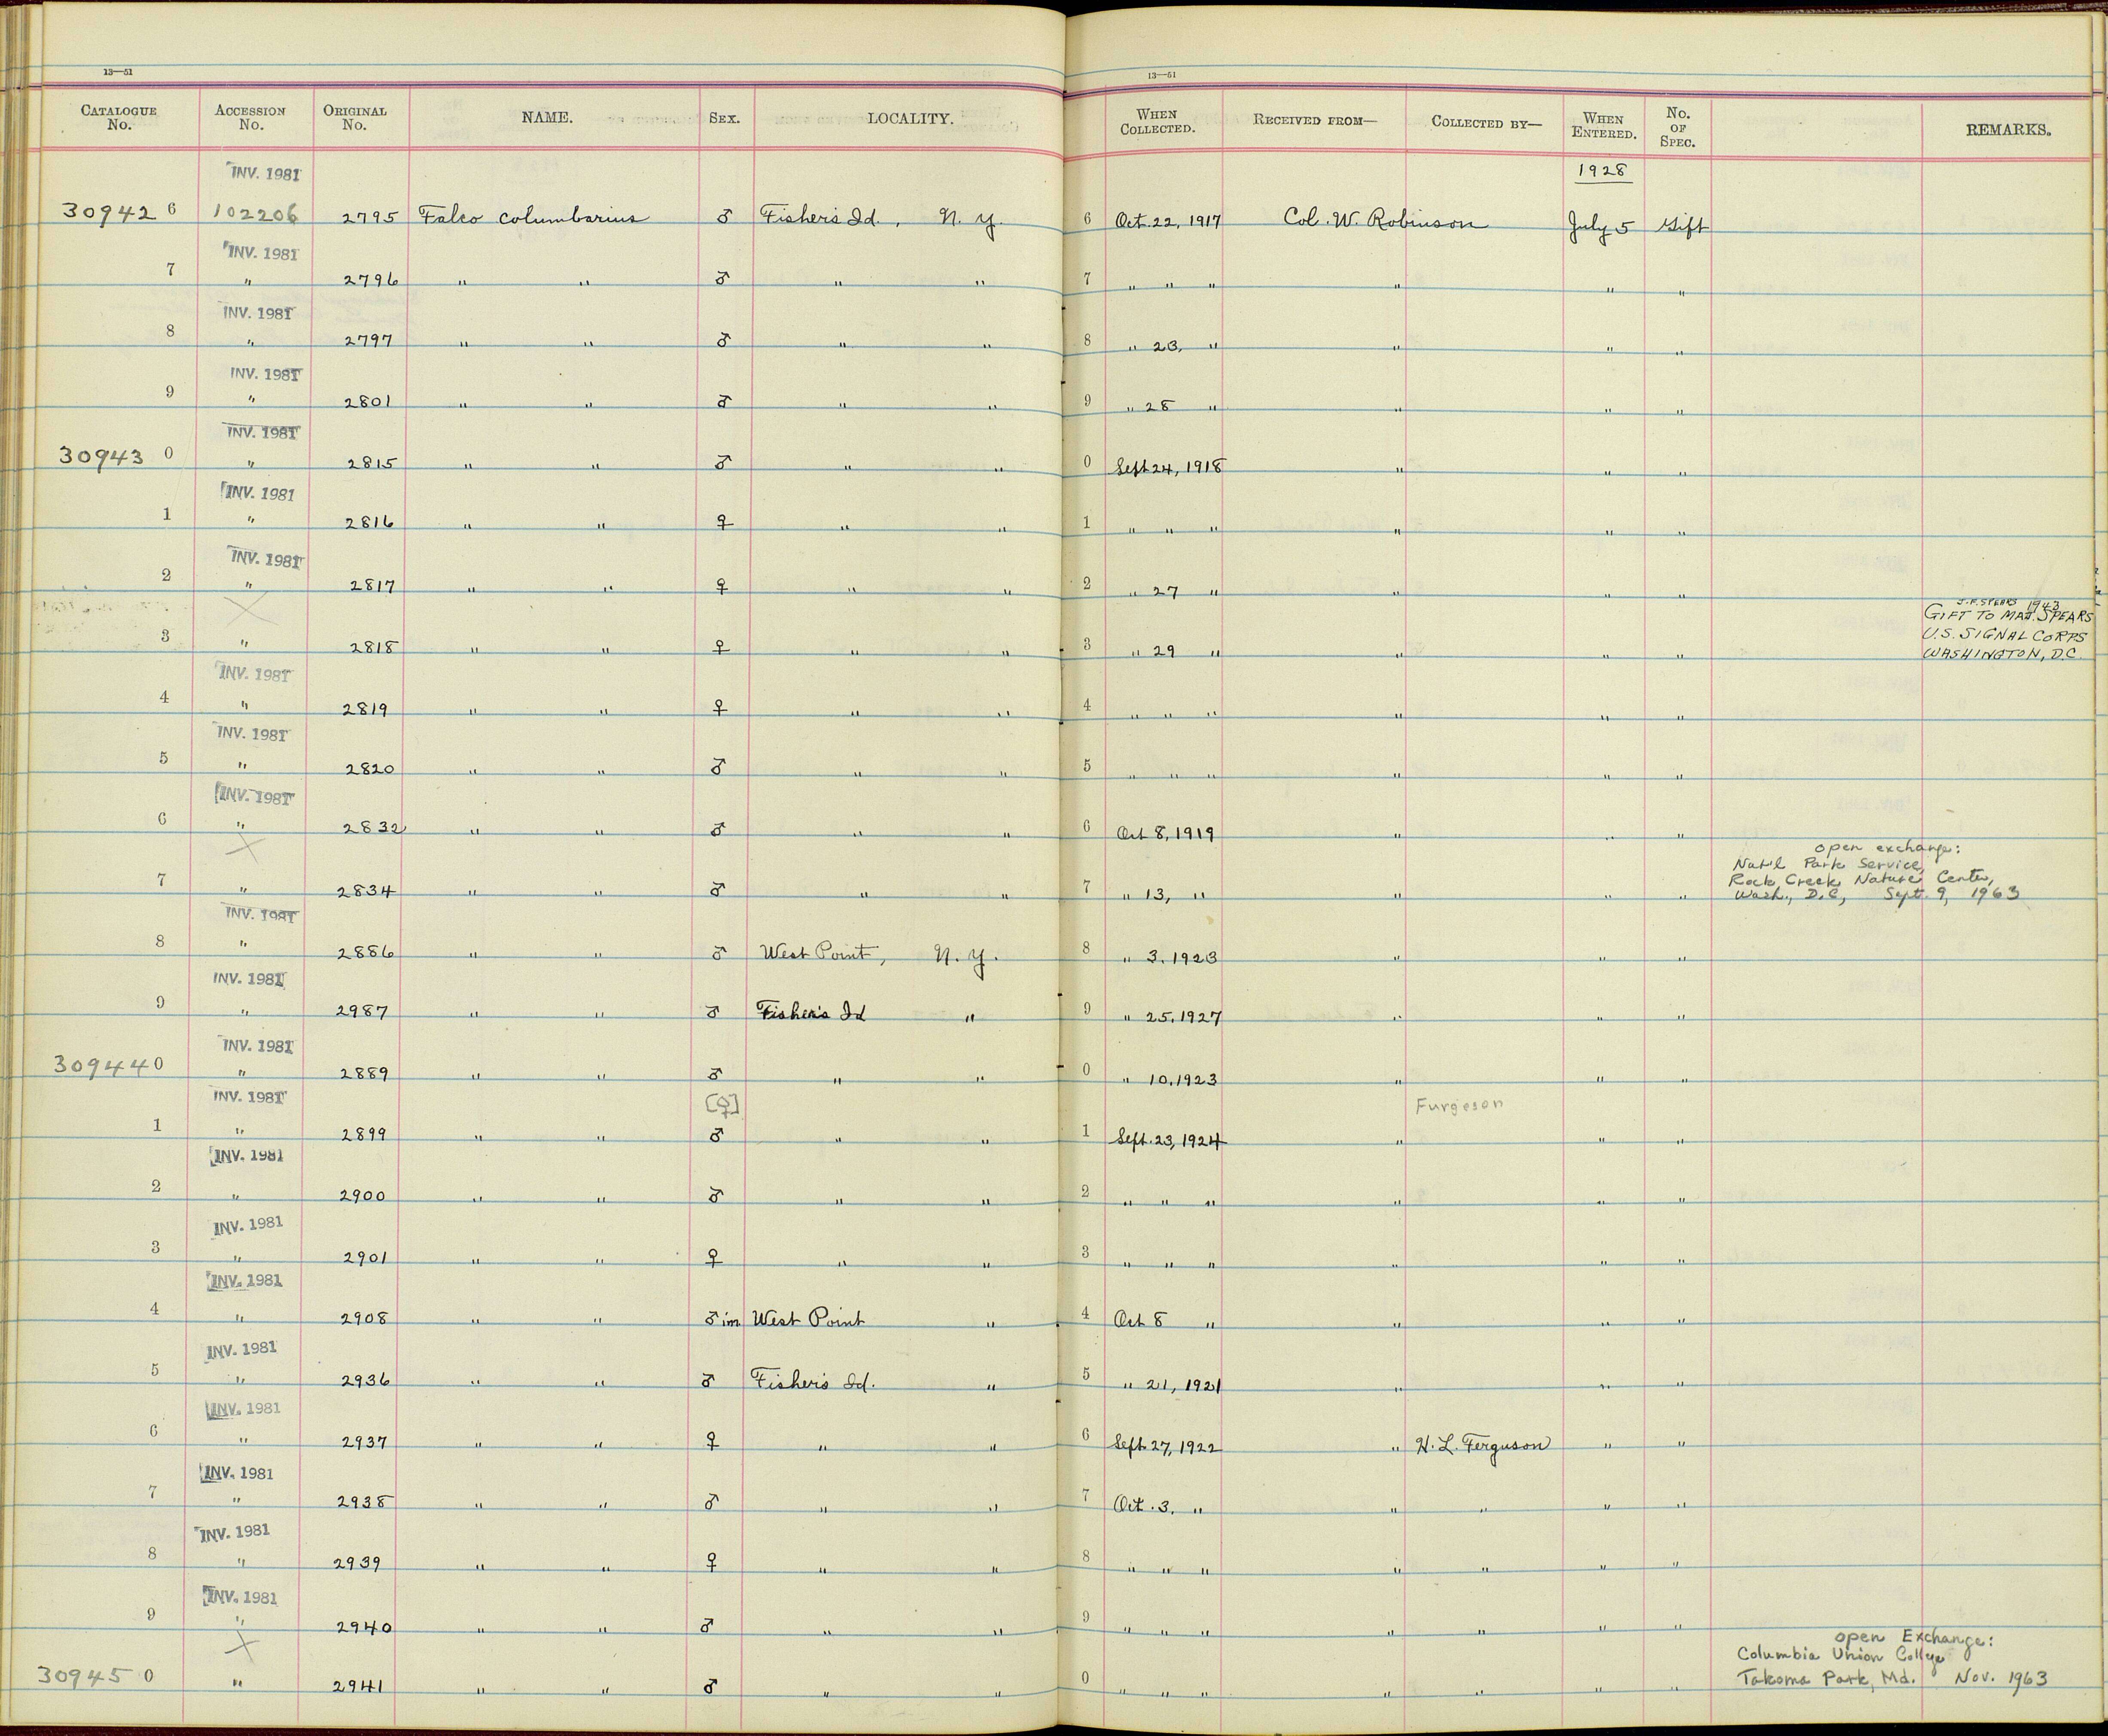 13—51 13—51
CATALOGUE No. ACCESSION No. ORIGINAL No. NAME. SEX. LOCALITY. WHEN COLLECTED. RECEIVED FROM— COLLECTED BY— WHEN ENTERED. No. OF SPEC. REMARKS.
INV. 1981 1928
30942 6 102206 2795 Falco columbarius ♂ Fishers Id., N. Y. 6 Oct. 22, 1917 Col. W. Robinson July 5 Gift
INV. 1981
7 " 2796 " " ♂ " " 7 " " " " " "
INV. 1981
8 " 2797 " " ♂ " " 8 " 23, " " " "
INV. 1981
9 " 2801 " " ♂ " " 9 " 28 " " " "
INV. 1981
30943 0 " 2815 " " ♂ " " 0 Sept 24, 1918 " " "
INV. 1981
1 " 2816 " " ♀ " " 1 " " " " " "
INV. 1981
2 " 2817 " " ♀ " " 2 " 27 " " " "
J.F. SPEARS 1943
GIFT TO MAJ. SPEARS
U.S. SIGNAL CORPS
3 " 2818 " " ♀ " " 3 " 29 " " " " WASHINGTON, D.C.
INV. 1981
4 " 2819 " " ♀ " " 4 " " " " " "
INV. 1981
5 " 2820 " " ♂ " " 5 " " " " " "
INV. 1981
6 " 2832 " " ♂ " " 6 Oct 8, 1919 " " "
open exchange:
Nat'l Park Service,
Rock Creek Nature Center,
7 " 2834 " " ♂ " " 7 " 13, " " " " Wash., D.C., Sept. 9, 1963
INV. 1981
8 " 2886 " " ♂ West Point, N. Y. 8 " 3, 1923 " " "
INV. 1981
9 " 2987 " " ♂ Fishers Id " 9 " 25, 1927 " " "
INV. 1981
30944 0 " 2889 " " ♂ " " 0 " 10, 1923 " " "
INV. 1981 [♀] Furgeson
1 " 2899 " " ♂ " " 1 Sept. 23, 1924 " " "
INV. 1981
2 " 2900 " " ♂ " " 2 " " " " " "
INV. 1981
3 " 2901 " " ♀ " " 3 " " " " " "
INV. 1981
4 " 2908 " " ♂ im West Point " 4 Oct 8 " " " "
INV. 1981
5 " 2936 " " ♂ Fishers Id. " 5 " 21, 1921 " " "
INV. 1981
6 " 2937 " " ♀ " " 6 Sept. 27, 1922 " H. L. Ferguson " "
INV. 1981
7 " 2938 " " ♂ " " 7 Oct. 3, " " " " "
INV. 1981
8 " 2939 " " ♀ " " 8 " " " " " " "
INV. 1981
9 " 2940 " " ♂ " " 9 " " " " " " "
open Exchange:
Columbia Union College
30945 0 " 2941 " " ♂ " " 0 " " " " " " " Takoma Park, Md. Nov. 1963